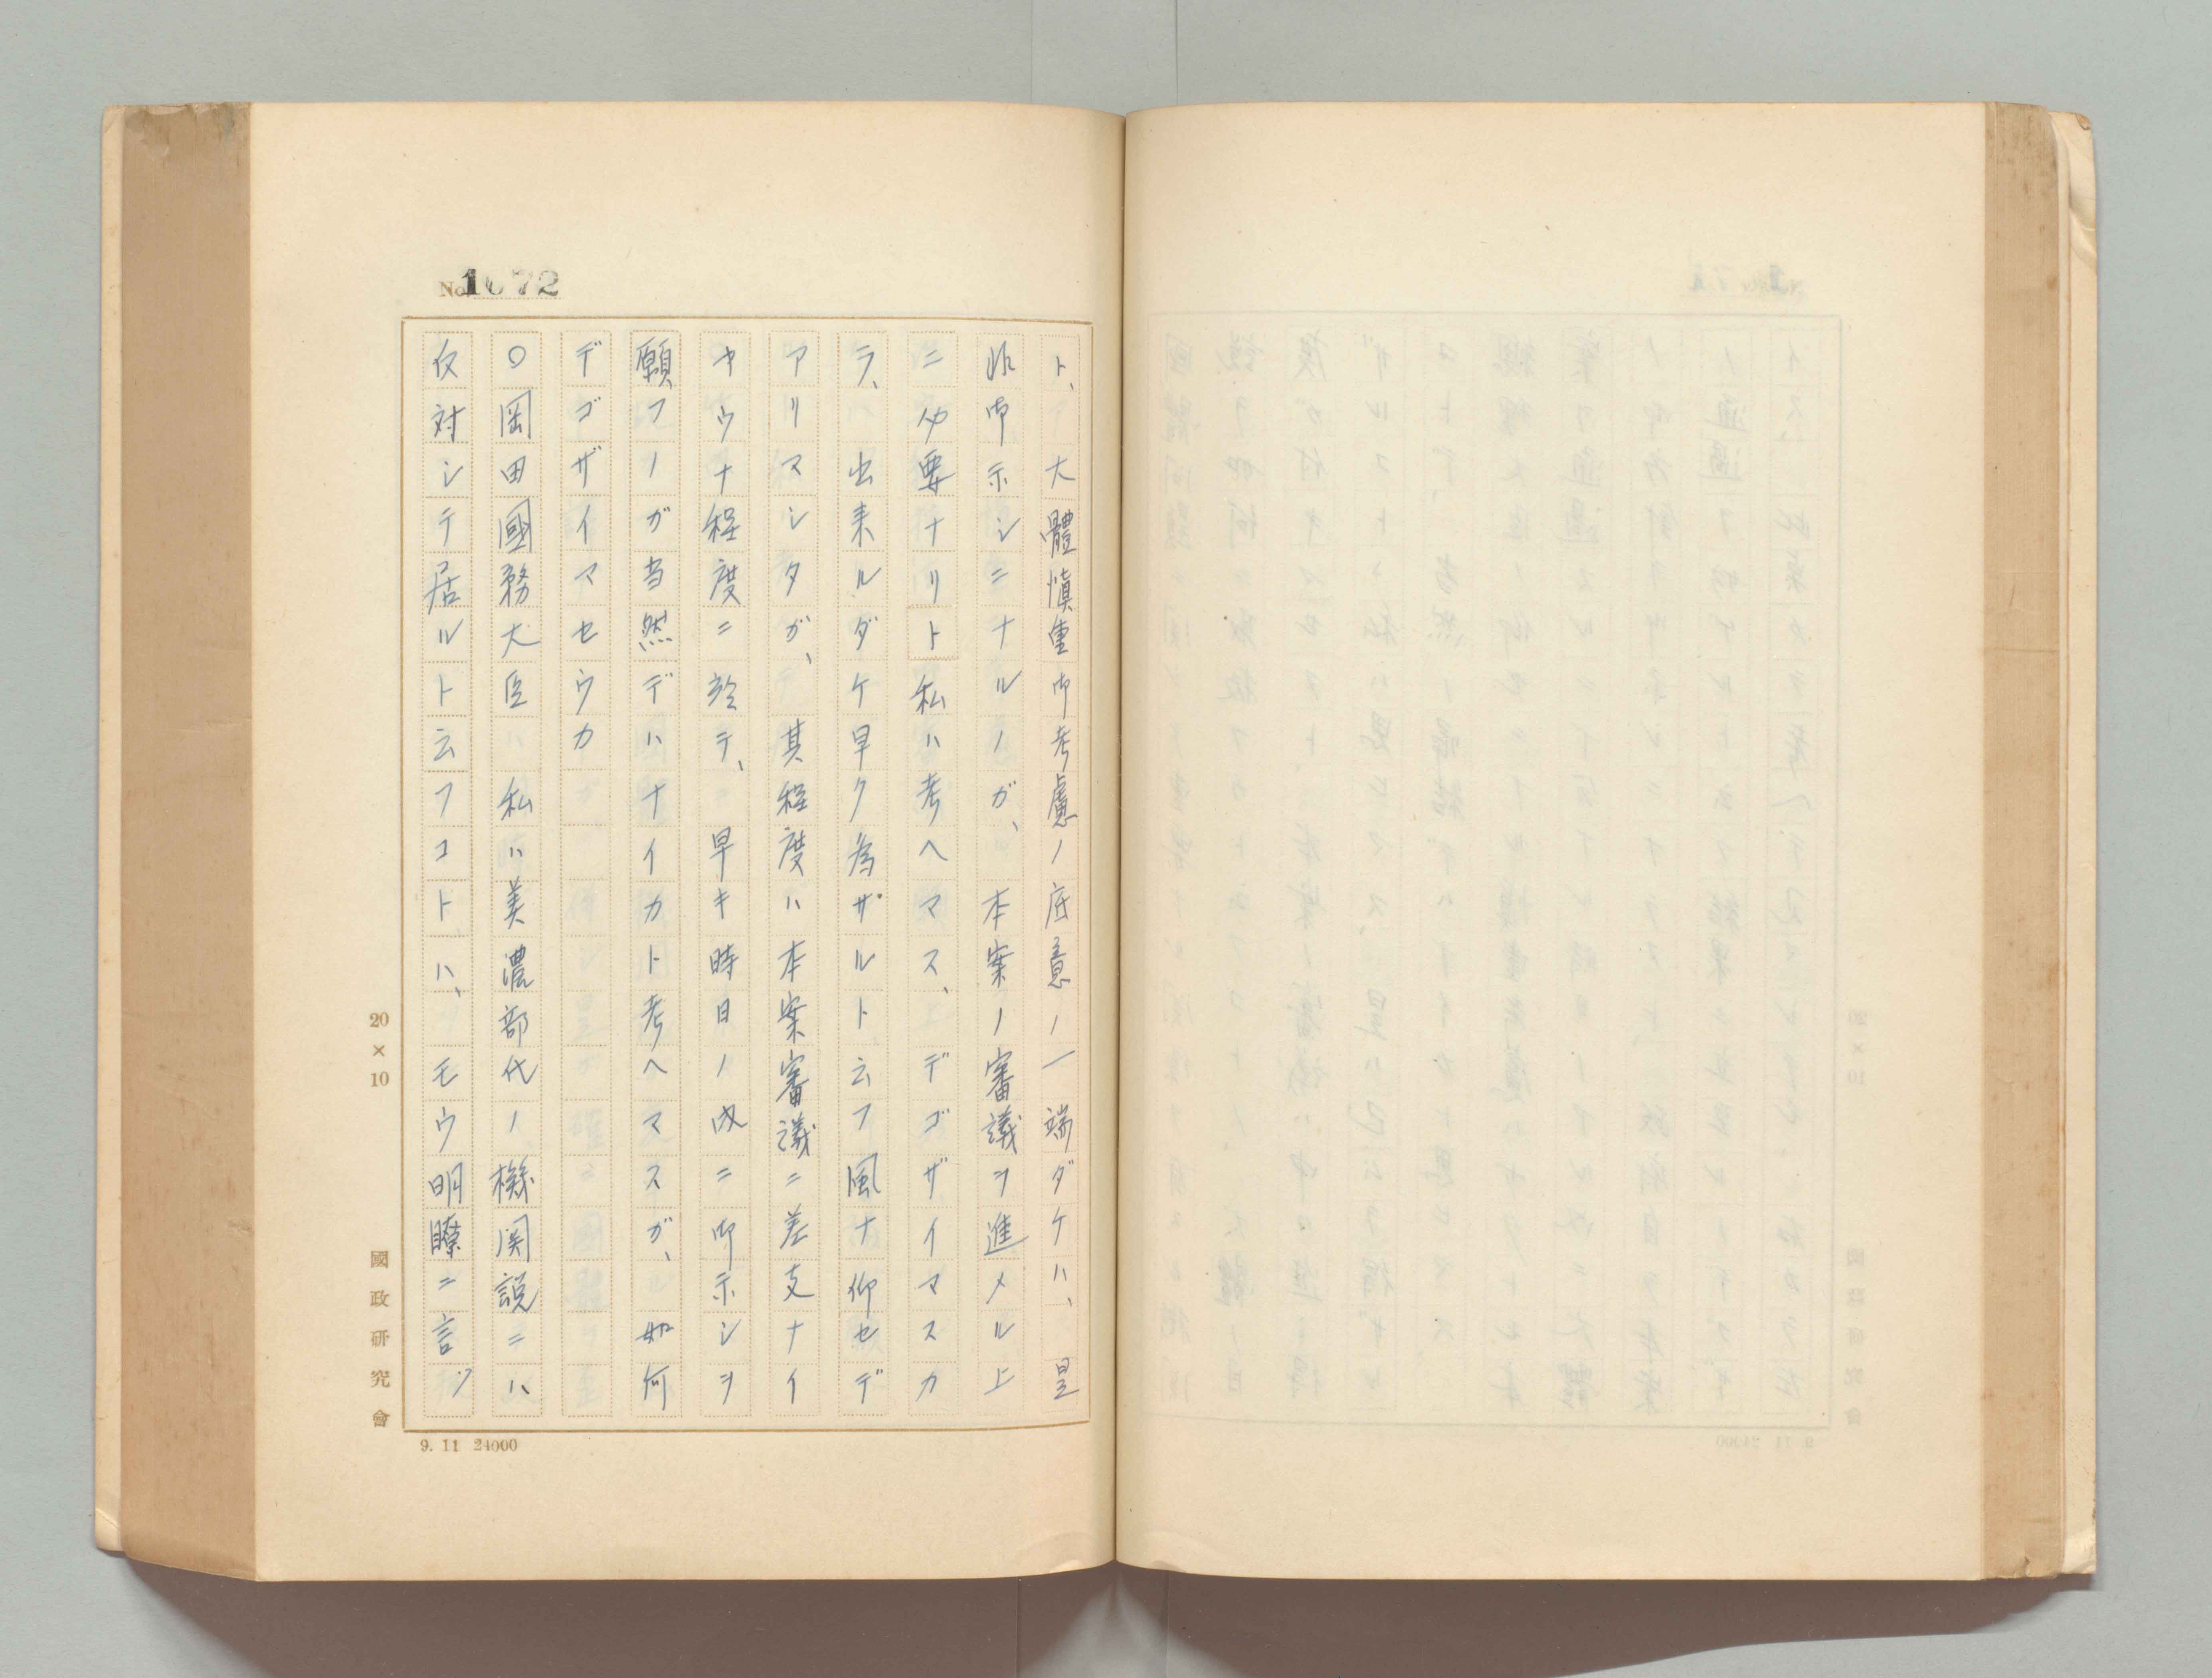 No. 1072
ト、大體愼重御考慮ノ底意ノ一端ダケハ、是
非御示シニナルノガ、本案ノ審議ヲ進メル上
ニ必要ナリト私ハ考ヘマス、デゴザイマスカ
ラ、出来ルダケ早ク為ザルト云フ風ナ仰セデ
アリマシタガ、其程度ハ本案審議ニ差支ナイ
ヤウナ程度ニ於テ、早キ時日ノ内ニ御示シヲ
願フノガ当然デハナイカト考ヘマスガ、如何
デゴザイマセウカ
〇岡田國務大臣 私ハ美濃部代ノ機関説ニハ
反対シテ居ルト云フコトハ、モウ明瞭ニ言ッ
20×10
國政研究會
9. 11 24000